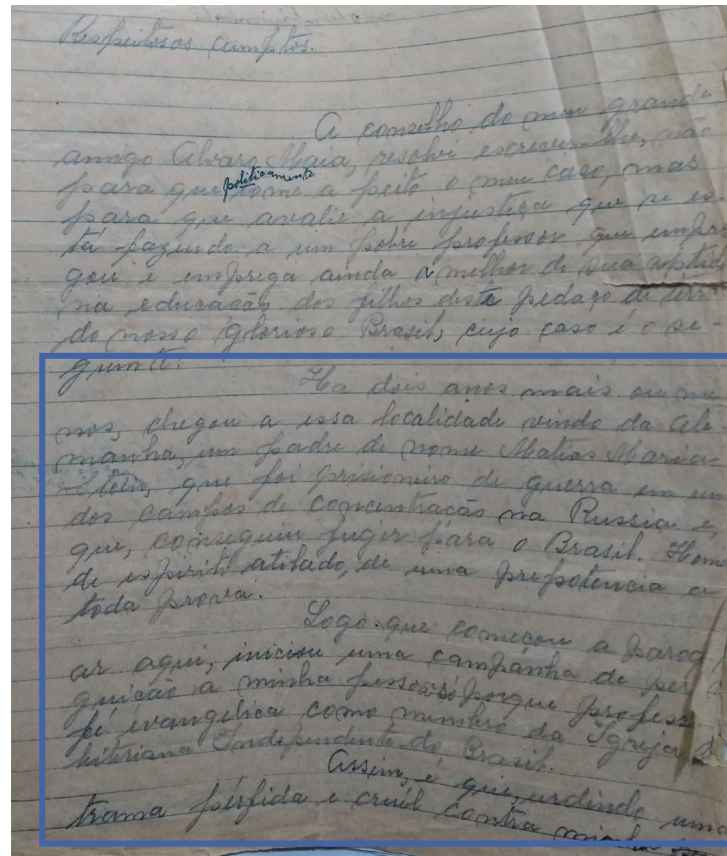 Respeitosos cumptos.
A conselho do meu grande
amigo Alvaro Maia, resolvi escrever-lhe, não
politicamente
para que tome a peito o meu caso, mas
para que avalie a injustiça que se es-
tá fazendo a um pobre professor que empre
gou e emprega ainda o melhor de sua aptid
na educação dos filhos deste pedaço de terr
do nosso glorioso Brasil, cujo caso é o se-
guinte:
Ha dois anos mais ou me
nos, chegou a essa localidade vindo da Ale
manha, um padre de nome Matias Maria
Stein, que foi prisioneiro de guerra em um
dos campos de concentracão na Russia e,
que, conseguiu fugir para o Brasil. Home
de espirito atilado, de uma prepotencia a
toda prova.
Logo que começou a paroq
ar aqui, iniciou uma campánha de per
guição a minha pessoa só porque profess
fé evangelica como membro da Igreja
biteriana Independente do Brasil.
Assim, é que, urdindo uma
trama pérfida e cruél contra minha